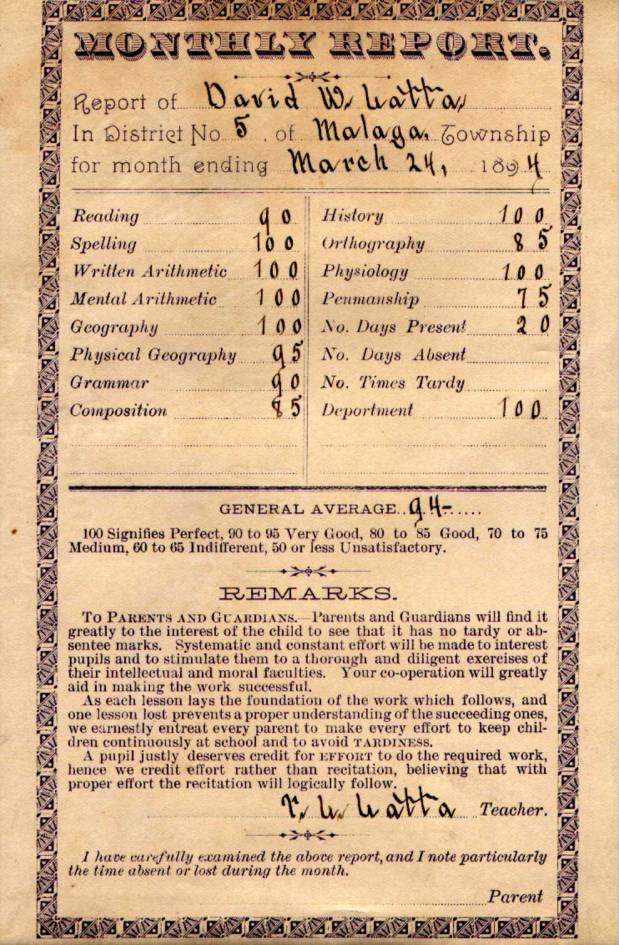 MONTHLY REPORT.
Report of David W. Latta,
In District No. 5 of Malaga, Township
for month ending March 24, 1894
Reading 90
Spelling 100
Written Arithmetic 100
Mental Arithmetic 100
Geography 100
Physical Geography 95
Grammar 90
Composition 85
History 100
Orthography 85
Physiology 100
Penmanship 75
No. Days Present 20
No. Days Absent
No. Times Tardy
Deportment 100
GENERAL AVERAGE 94-
100 Signifies Perfect, 90 to 95 Very Good, 80 to 85 Good, 70 to 75
Medium, 60 to 65 Indifferent, 50 or less Unsatisfactory.
REMARKS.
TO PARENTS AND GUARDIANS.—Parents and Guardians will find it
greatly to the interest of the child to see that it has no tardy or ab-
sentee marks. Systematic and constant effort will be made to interest
pupils and to stimulate them to a thorough and diligent exercises of
their intellectual and moral faculties. Your co-operation will greatly
aid in making the work successful.
As each lesson lays the foundation of the work which follows, and
one lesson lost prevents a proper understanding of the succeeding ones,
we earnestly entreat every parent to make every effort to keep chil-
dren continuously at school and to avoid TARDINESS.
A pupil justly deserves credit for EFFORT to do the required work,
hence we credit effort rather than recitation, believing that with
proper effort the recitation will logically follow.
Latta Teacher.
I have carefully examined the above report, and I note particularly
the time absent or lost during the month.
Parent